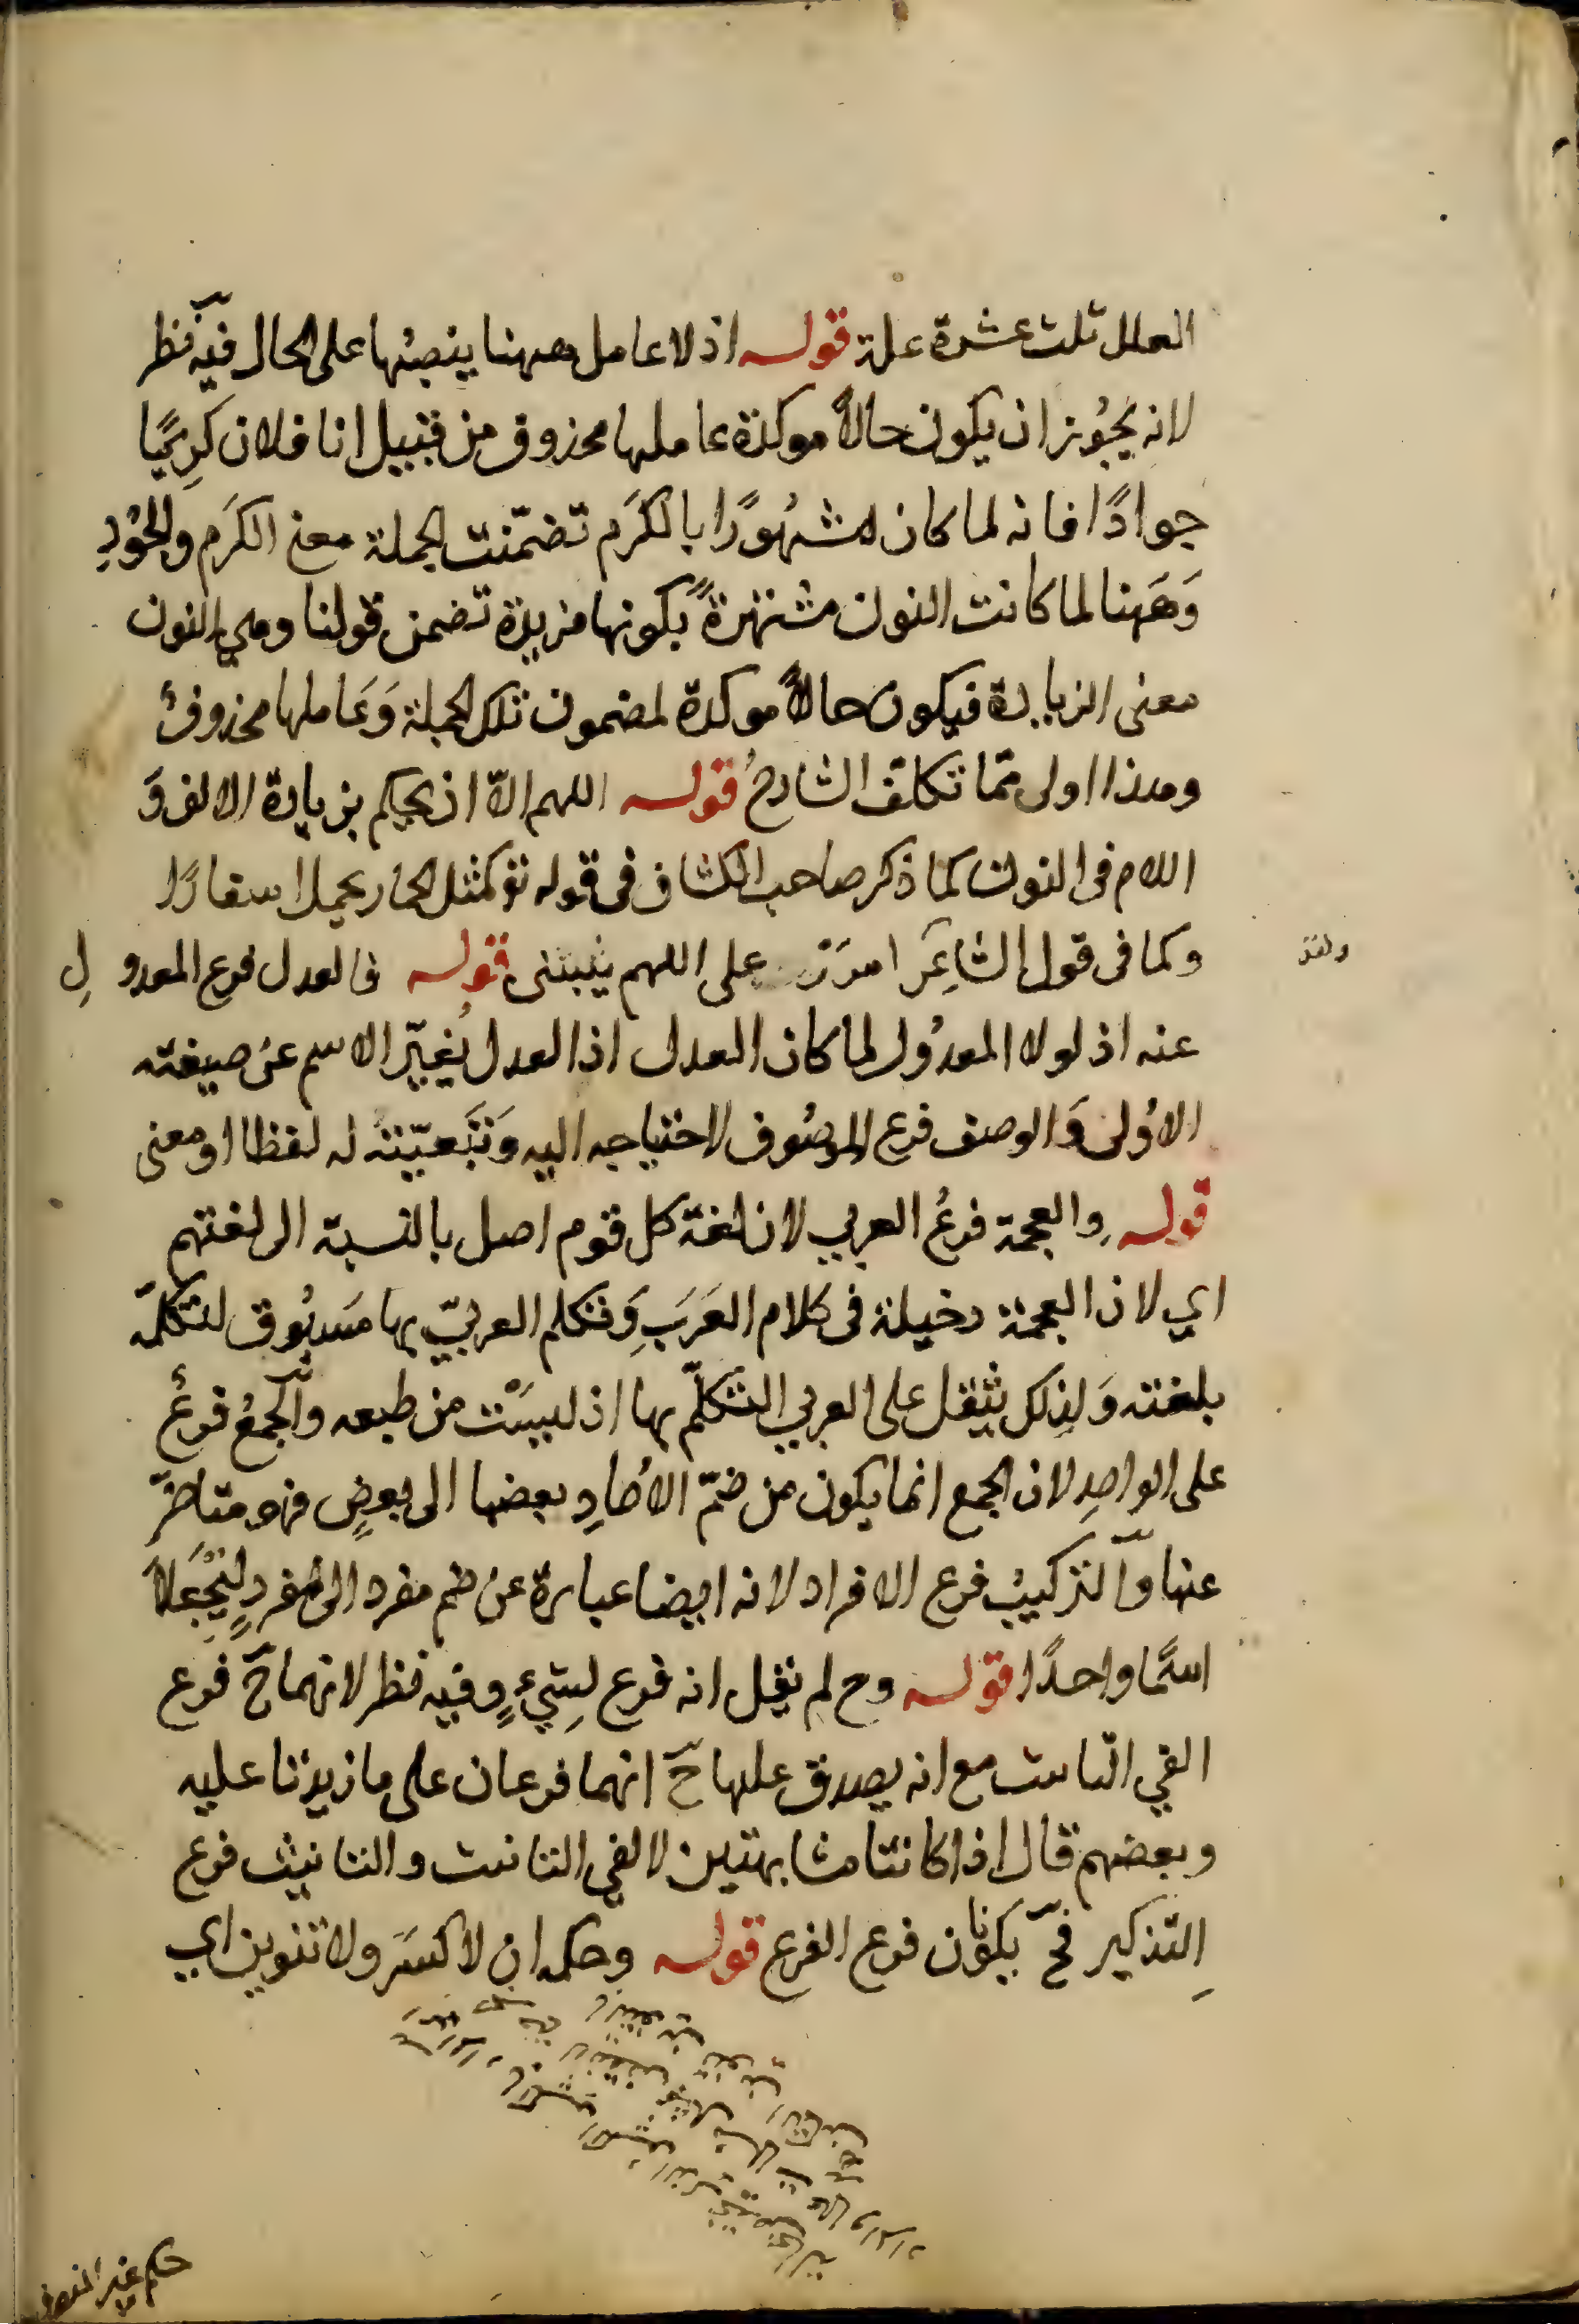 العلل ثلث عشرة علة قوله اذ لا عامل ههنا ينصبها على الحال فيه نظر
لانه يجوز ان يكون حالاً موكدة عاملها محذوف من قبيل انا فلان كريمًا
جوادًا فانه لما كان مشهورًا بالكرم تضمّنت الجملة معنى الكرم والجُودِ
وَههنا لما كانت النون مشتهرةً بكونها مزيدة تضمن قولنا وهي النون
معنى الزيادة فيكون حالاً موكدة لمضمون تلك الجملة وَعاملها محذوفٌ
وهذا اولى ممّا تكلّف الشارحُ قوله اللهم الاّ ان يحكم بزيادة الالف وَ
اللام في النون كما ذكر صاحب الكشاف في قوله تع كمثل الحمار يحمل اسفارًا
وكما في قول الشاعِر امرّ على اللهم يسبنى قوله فالعدل فرع المعدولِ
ولقد
عنه اذ لولا المعدُول لما كان العدل اذ العدل يُغيّر الاسم عن صيغته
الاُولى وَالوصف فرع الموصُوف لاحتياجه اليه وَتَبَعيّته له لفظا او معنى
قوله والعجمة فرعُ العربي لان لغة كل قوم اصل بالنسبة الى لغتهم
اي لان العجمة دخيلة في كلام العَرَبِ وَتكلم العربيّ بها مَسبُوق لتكلّمه
بلغته وَلذلك يثقل على العربي التكلّم بها اذ ليسَتْ من طبعه والجمعُ فرعٌ
على الواحدِ لان الجمع انما يكون من ضمّ الاُحادِ بعضها الى بعضٍ فهو متاخرّ
عنها والتركيبُ فرع الافراد لانه ايضا عبارة عن ضم مفرد الى مفردٍ ليُجْعَلاَ
اسمًا واحدًا قوله وح لم يقل انه فرع لِشيءٍ وفيه نظر لانهما ح فرع
الفي التانيث مع انه يصدق عليها ح انهما فرعان على ما زيدتا عليه
وبعضهم قال اذا كانتا مشابهتين لالفي التانيث والتانيث فرع
التذكيرِ فح يكونان فرع الفرع قوله وحكمه ان لا كسَر ولا تنوين اي
حكم غير المنصرف